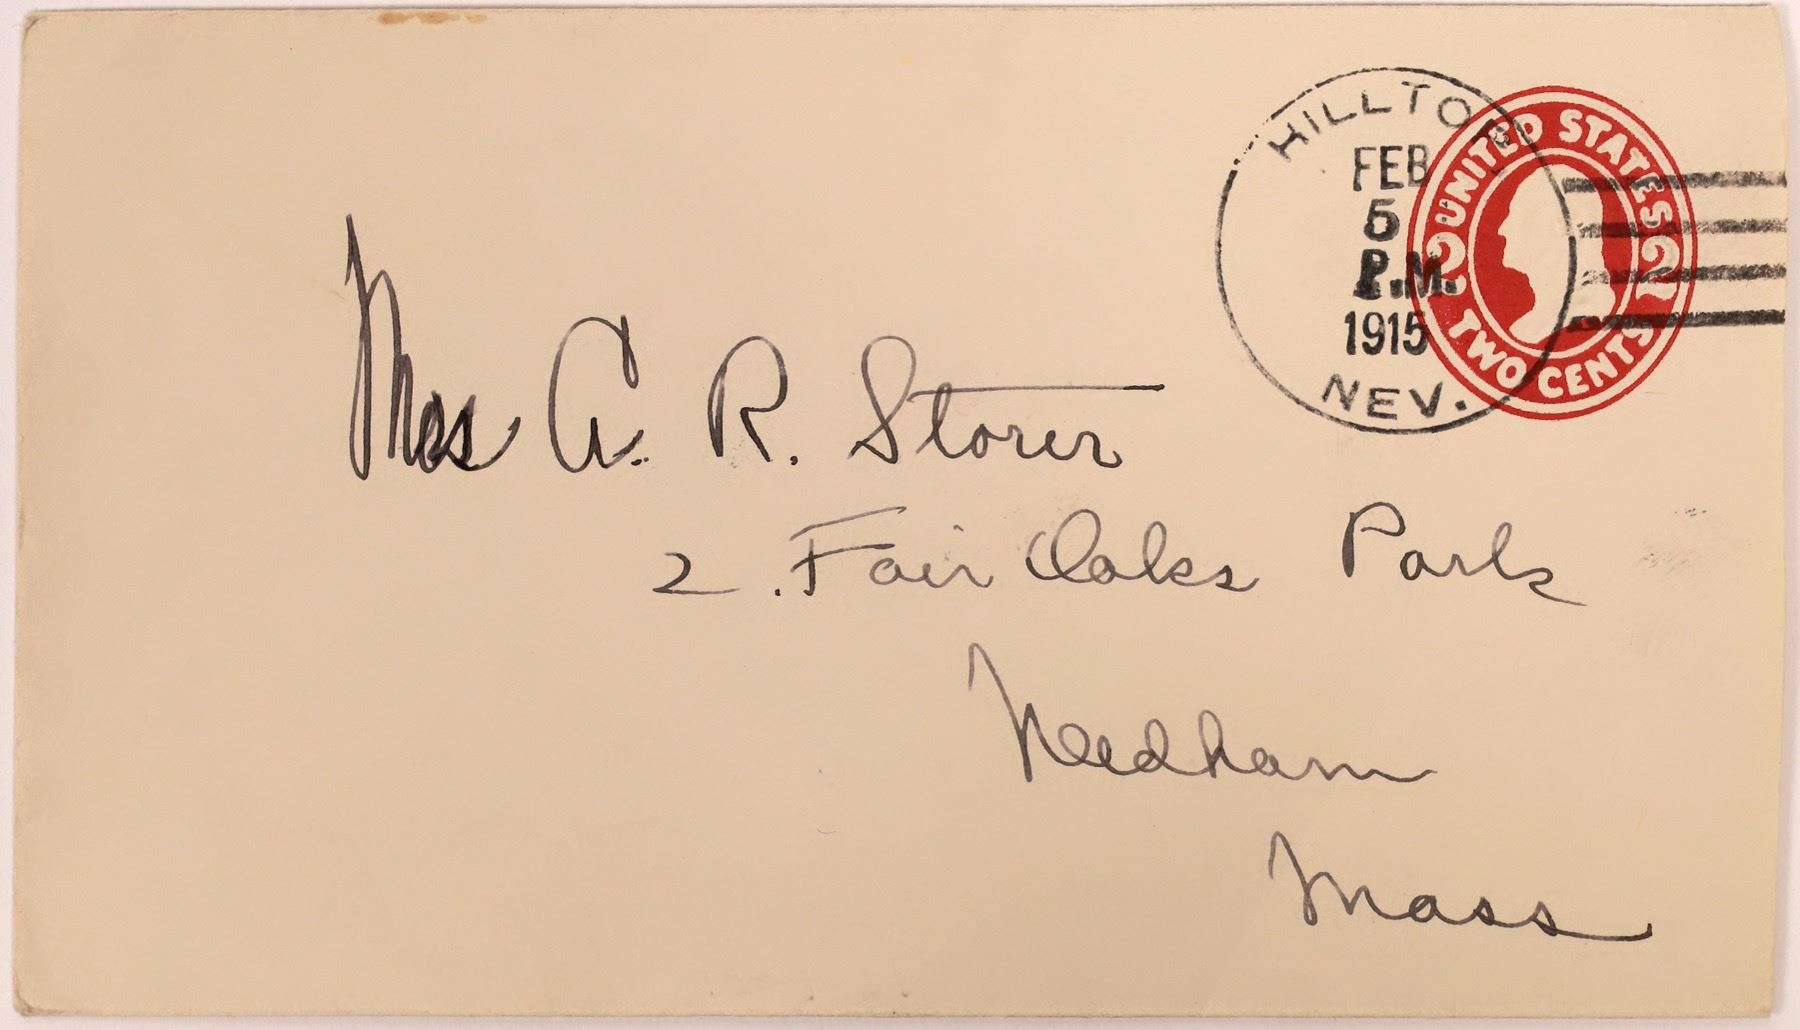 HILLTOP
FEB
5
P.M.
1915
NEV.
UNITED STATES
2 2
TWO CENTS
Mrs A. R. Storer
2. Fair Oaks Park
Needham
Mass